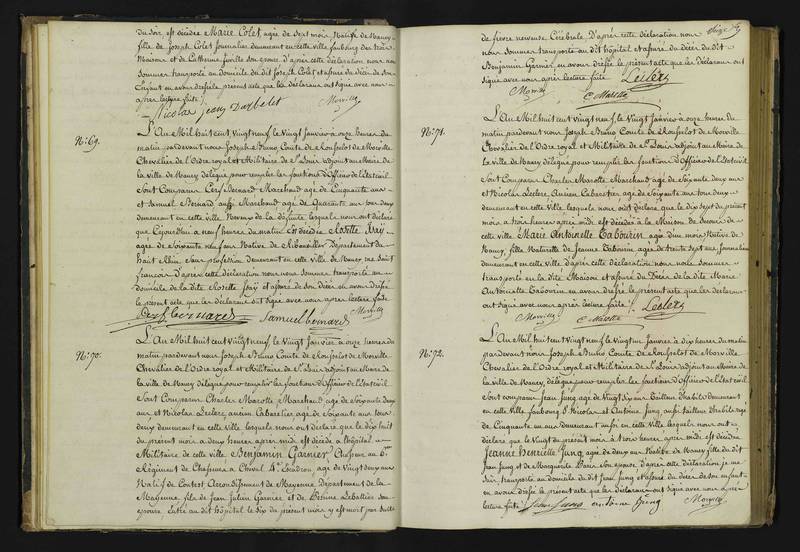 du soir, est décédée Marie Colet, agée de sept mois, Native de Nancy
fille de Joseph Colet Journalier demeurant en cette ville faubourg des trois
Maisons et de Catherine son épouse. d'après cette déclaration nous nous
sommes transporté au domicile du dit Joseph Colet et assuré du décès de son
Enfant en avons dressé le présent acte que les déclarans ont signé avec nous
après lecture faite.
Nicolas jean Darbelet Morville
N.° 69.
L'An Mil huit cent Vingt Neuf, le Vingt Janvier à onze heures du
matin pardevant nous Joseph Bruno Comte de Rousselot de Morville
Chevalier de l'Ordre royal et Militaire de St Louis adjoint au Maire de
la Ville de Nancy délégué pour remplir les fonctions d'Officier de l'Etat civil
Sont Comparus Cerf Bernard Marchand agé de Cinquante ans
et Samuel Bernard aussi Marchand agé de Quarante ans tous deux
demeurant en cette ville Neveux de la défunte lesquels nous ont déclaré
que Cejourdhui à neuf heures du matin est décédée Rosette
agée de Soixante neuf ans Native de Ribauviller Département du
haut Rhin, Sans profession demeurant en cette ville de Nancy rue Saint
francois. D'après cette déclaration nous nous sommes transporté au
domicile de la dite Rosette et assuré de son décès en avons dressé
le présent acte que les déclarans ont signé avec nous après lecture faite
Cerf bernard Samuel bernard Morville
N.° 70.
L'An Mil huit cent Vingt Neuf, le Vingt Janvier à onze heures du
matin pardevant nous Joseph Bruno Comte de Rousselot de Morville
Chevalier de l'Ordre royal et Militaire de St Louis adjoint au Maire de
la ville de Nancy délégué pour remplir les fonctions d'Officier de l'Etat civil
Sont Comparus Charles Marotte Marchand agé de Soixante deux
ans et Nicolas Leclerc, ancien Cabaretier, agé de Soixante ans tous
deux demeurant en cette ville lesquels nous ont déclaré que le dix huit
du présent mois à deux heures après midi est décédé à l'hôpital
Militaire de cette ville Benjamin Garnier Chasseur au 6me
Régiment de Chasseurs à Cheval 4e Escadron, agé de Vingt deux ans
Natif de Contest Arrondissement de Mayenne, Département de la
Mayenne, fils de Jean Julien Garnier et de son
épouse, Entré au dit hôpital le dix du présent mois y est mort par suite
de fièvre nerveuse Cérébrale. D'après cette déclaration nous
nous sommes transporté au dit hôpital et assuré du décès du dit
Benjamin Garnier, en avons dressé le présent acte que les Déclarans ont
signé avec nous après lecture faite. Leclerc
Morville C. Marotte
N.° 71.
L'An Mil huit cent Vingt neuf le Vingt Janvier à onze heures du
matin pardevant nous Joseph Bruno Comte de Rousselot de Morville
Chevalier de l'Ordre royal et Militaire de St Louis adjoint au Maire de
la Ville de Nancy délégué pour remplir les fonctions d'Officier de l'Etat civil
Sont Comparus Charles Marotte Marchand agé de Soixante deux ans
et Nicolas Leclerc, Ancien Cabaretier agé de Soixante ans tous deux
demeurant en cette ville, lesquels nous ont déclaré que le dix sept du présent
mois à trois heures après midi est décédée à la Maison de Secours de
cette ville Marie Antoinette Tabourin agée d'un mois Native de
Nancy, fille Naturelle de Jeanne Tabourin agée de trente sept ans Journalière
demeurant en cette ville, d'après cette déclaration nous nous sommes
transporté en la dite Maison et assuré du Décès de la dite Marie
Antoinette Tabourin en avons dressé le présent acte que les déclarans
ont signé avec nous après lecture faite. Leclerc
Morville C. Marotte
N.° 72.
L'An Mil huit cent Vingt neuf le Vingt un Janvier à dix heures du matin
pardevant nous Joseph Bruno Comte de Rousselot de Morville
Chevalier de l'Ordre royal et Militaire de St Louis adjoint au Maire de
la ville de Nancy délégué pour remplir les fonctions d'Officier de l'Etat civil
Sont Comparus Jean Jung, agé de Vingt six ans Tailleur d'habits demeurant
en cette Ville faubourg St Nicolas et Antoine Jung aussi tailleur d'habits agé
de Cinquante un ans demeurant aussi en cette Ville lesquels nous ont
déclaré que le Vingt du présent mois à trois heures après midi est décédée
Jeanne Henriette Jung, agée de deux ans Native de Nancy fille du dit
Jean Jung et de Marguerite son épouse, d'après cette déclaration je me
suis transporté au domicile du dit Jean Jung et assuré du décès de son enfant
en avons dressé le présent acte que les déclarans ont signé avec nous après
lecture faite. Jean Jung antoine Jung Morville